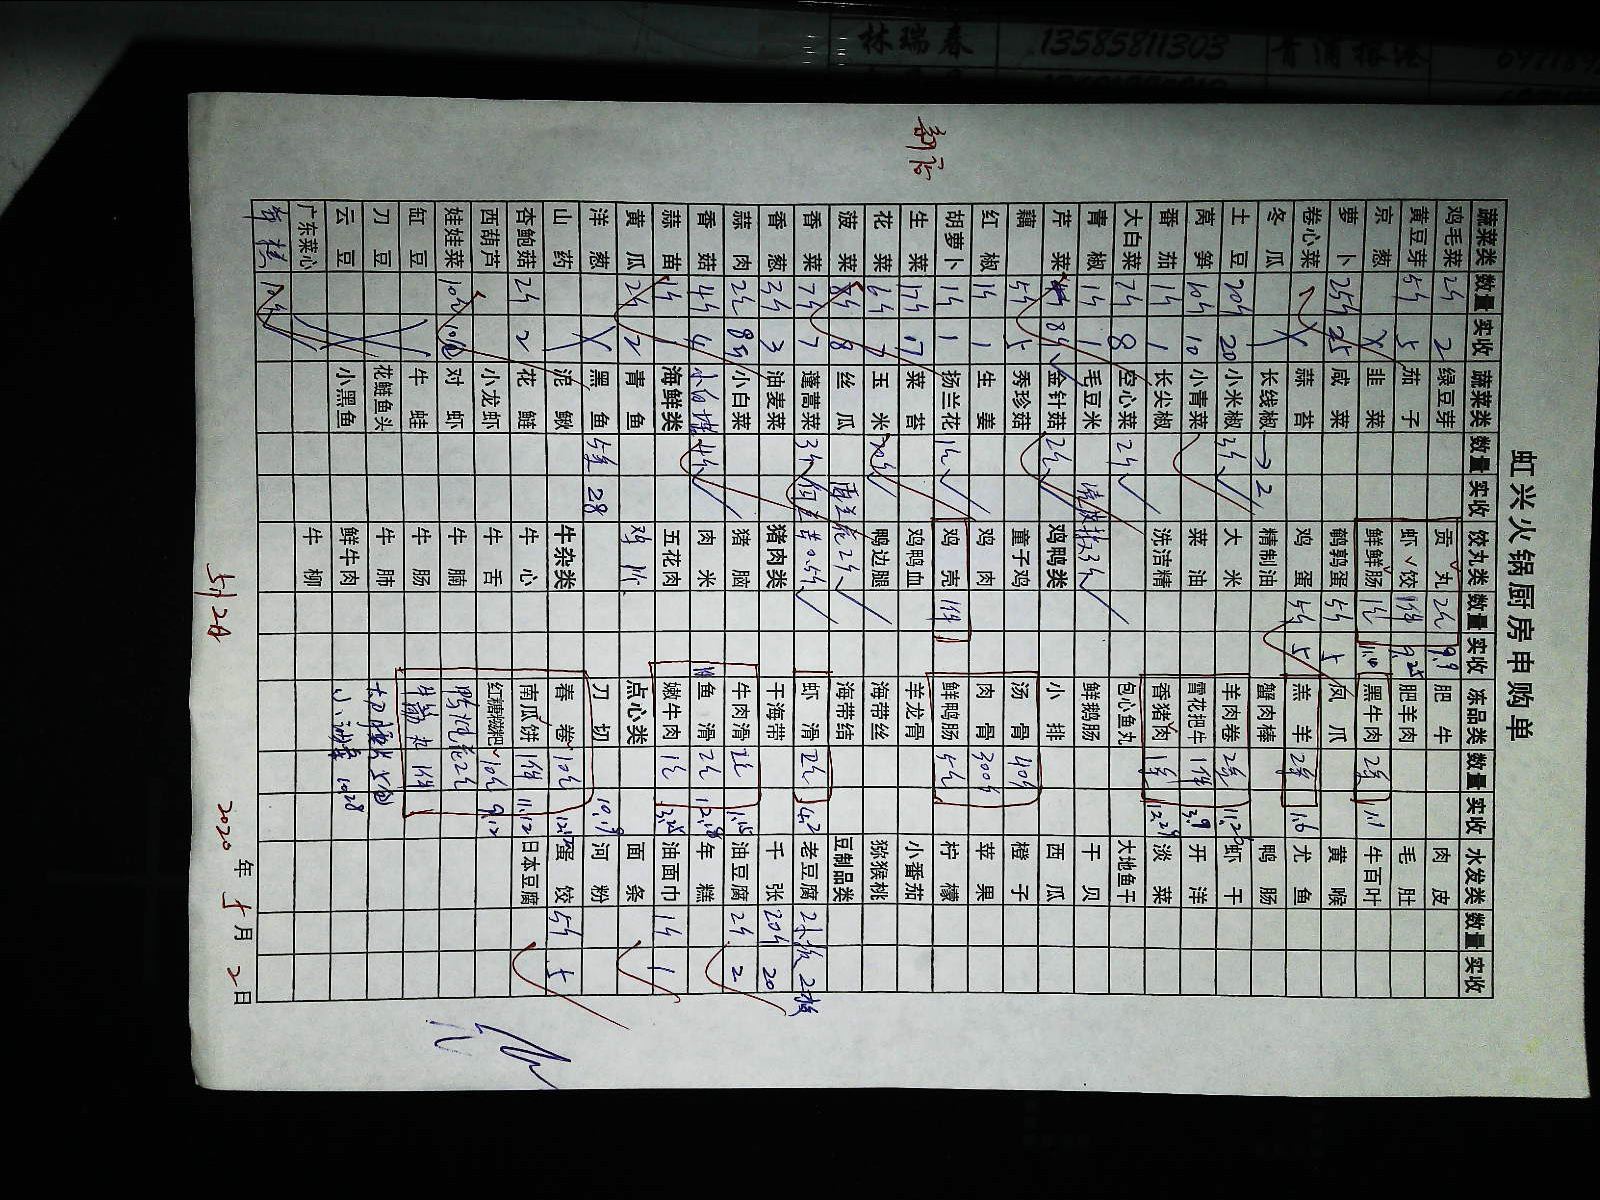 林瑞春 13585811303 青浦报法
新店
虹兴火锅厨房申购单
蔬菜类 数量 实收 蔬菜类 数量 实收 饺丸类 数量 实收 冻品类 数量 实收 水发类 数量 实收
鸡毛菜 2斤 2 绿豆芽 贡丸 2斤 9.9 肥牛 肉皮
黄豆芽 5斤 5 茄子 虾饺 1件 9.25 肥羊肉 毛肚
京葱 韭菜 鲜鲜肠 1斤 11.10 黑牛肉 2条 1.1 牛百叶
萝卜 25斤 25 咸菜 鹌鹑蛋 5斤 5 凤爪 黄喉
卷心菜 蒜苔 鸡蛋 5斤 5 羔羊 2条 1.6 尤鱼
冬瓜 长线椒 →2 精制油 蟹肉棒 鸭肠
土豆 20斤 20 小米椒 3斤 大米 羊肉卷 2条 11.25 虾干
莴笋 10斤 10 小青菜 菜油 雪花把牛 1件 3.9 开洋
番茄 1斤 1 长尖椒 洗洁精 香猪肉 1条 12.29 淡菜
大白菜 7斤 8 空心菜 2斤 包心鱼丸 大地鱼干
青椒 1斤 1 毛豆米 鲜鹅肠 干贝
芹菜 8斤 金针菇 2斤 鸡鸭类 小排 西瓜
藕 5斤 5 秀珍菇 童子鸡 汤骨 40斤 橙子
红椒 1斤 1 生姜 鸡肉 肉骨 300斤 苹果
胡萝卜 1斤 1 扬兰花 1斤 鸡壳 1件 鲜鸭肠 5斤 柠檬
生菜 17斤 17 菜苔 鸡鸭血 羊龙骨 小番茄
花菜 6斤 7 玉米 鸭边腿 海带丝 猕猴桃
菠菜 8斤 8 丝瓜 海带结 豆制品类
香菜 7斤 7 蓬蒿菜 3斤 虾滑 4.2 老豆腐 2板
香葱 3斤 3 油麦菜 猪肉类 干海带 千张 20斤 20
蒜肉 2斤 8斤 小白菜 猪脑 牛肉滑 1.15 油豆腐 2斤 2
香菇 4斤 4 4斤 肉米 鱼滑 2斤 12.18 年糕
蒜苗 1斤 1 海鲜类 五花肉 嫩牛肉 1斤 3.25 油面巾 1斤 1
黄瓜 2斤 2 青鱼 点心类 面条
洋葱 黑鱼 5条 28 刀切 10.19 河粉
山药 泥鳅 牛杂类 春卷 10斤 12.17 蛋饺 5斤 5
杏鲍菇 2斤 2 花鲢 牛心 南瓜饼 1件 11.12 日本豆腐
西葫芦 小龙虾 牛舌 红糖糍粑 10斤 9.12
娃娃菜 10斤 10包 对虾 牛腩
缸豆 牛蛙 牛肠 1件
刀豆 花鲢鱼头 牛肺
云豆 小黑鱼 鲜牛肉 10.28
广东菜心 牛柳
年糕 10斤
5月2日
2020年5月2日